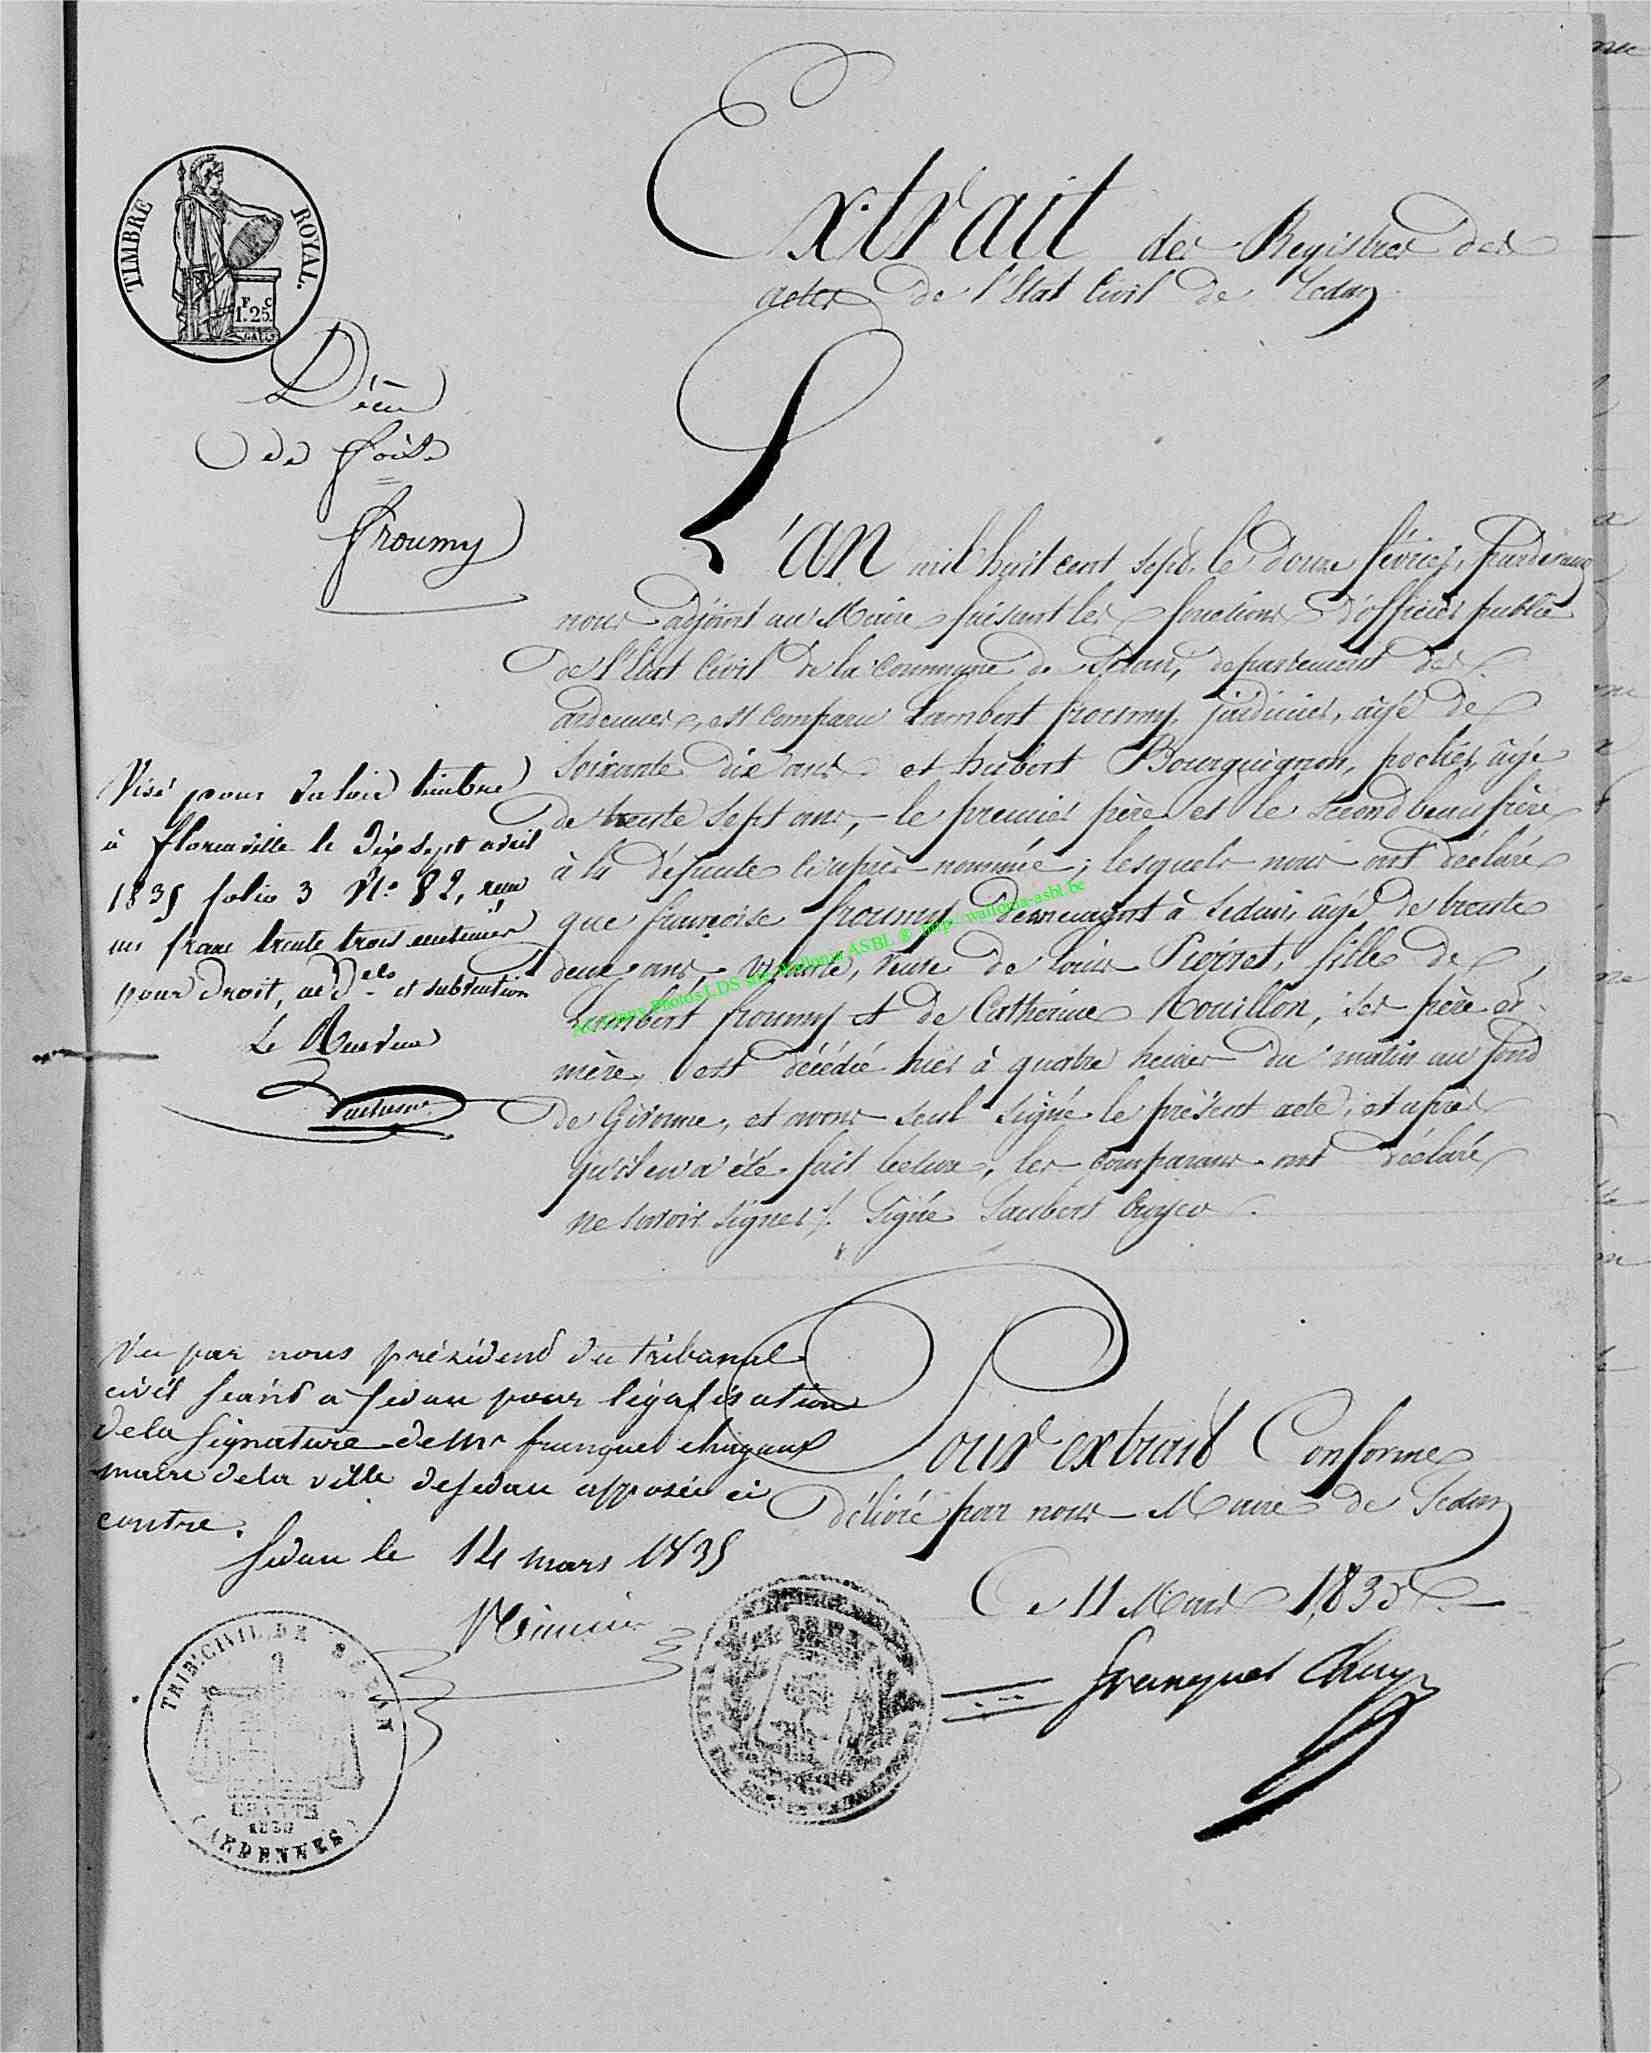 TIMBRE ROYAL
F. C.
1. 25.
Extrait des Registres des
actes de l'Etat Civil de Sedan
Décès
de
froumy
L'an mil huit cent sept, le douze février, pardevant
nous adjoint au Maire faisant les fonctions d'officier public
de l'Etat Civil de la commune de Sedan, departement des
ardennes, est comparu Lambert froumy, jardinier, âgé de
soixante dix ans et hubert Bourguignon, poelier, âgé
de trente sept ans, le premier père et le second beau frère
à la défunte ci après nommée; lesquels nous ont déclaré
que françoise froumy demeurant à Sedan, âgé de trente
deux ans, veuve de louis Pierret, fille de
Lambert froumy et de Catherine Rouillon, ses père et
mère, est décédée hier à quatre heures du matin au fond
de Givonne, et avons seul signé le présent acte, et après
qu'il en a été fait lecture, les comparans ont déclaré
ne savoir signer ./. Signé
Visé pour valoir timbre
à florenville le Dix sept avril
1835 folio 3 N° 82, reçu
un franc trente trois centimes
pour droit, add.els et subvention
Le Receveur
Vu par nous président du tribunal
civil séant a sedan pour légalisation
de la signature de Mr franquet chayaux
maire de la ville de sedan apposée ci
contre.
sedan le 14 mars 1835
Pour extrait Conforme
délivré par nous Maire de Sedan
Ce 11 Mars 1835
franquet Chay
TRIB. CIVIL DE SEDAN
CHARTE
1830
(ARDENNES)
Photos LDS ASBL ® http://wallonia-asbl.be